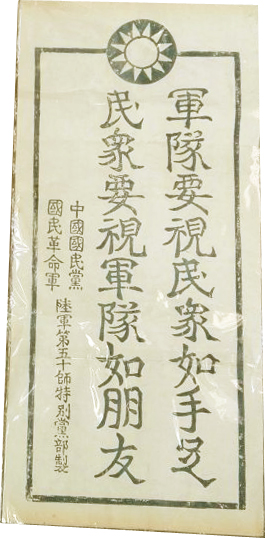 軍隊要視民衆如手足
民衆要視軍隊如朋友
中國國民黨
國民革命軍
陸軍第五十師特別黨部製